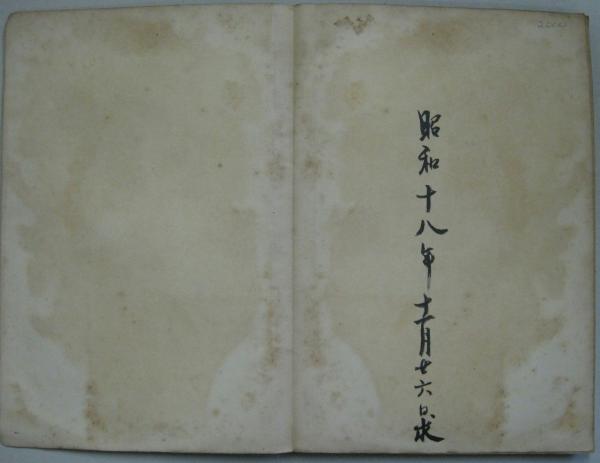 昭和十八年十一月廿六日求